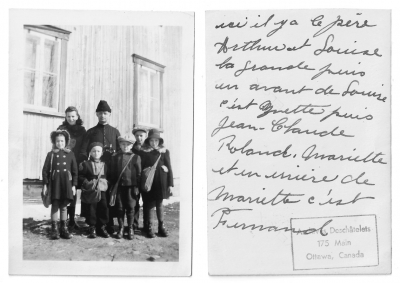 ici il y a le père
Arthur et Louise
la grande puis
en avant de Louise
c'est Yvette puis
Jean-Claude
Roland, Mariette
et en arière de
Mariette c'est
Fernand
Deschâtelets
175 Main
Ottawa, Canada